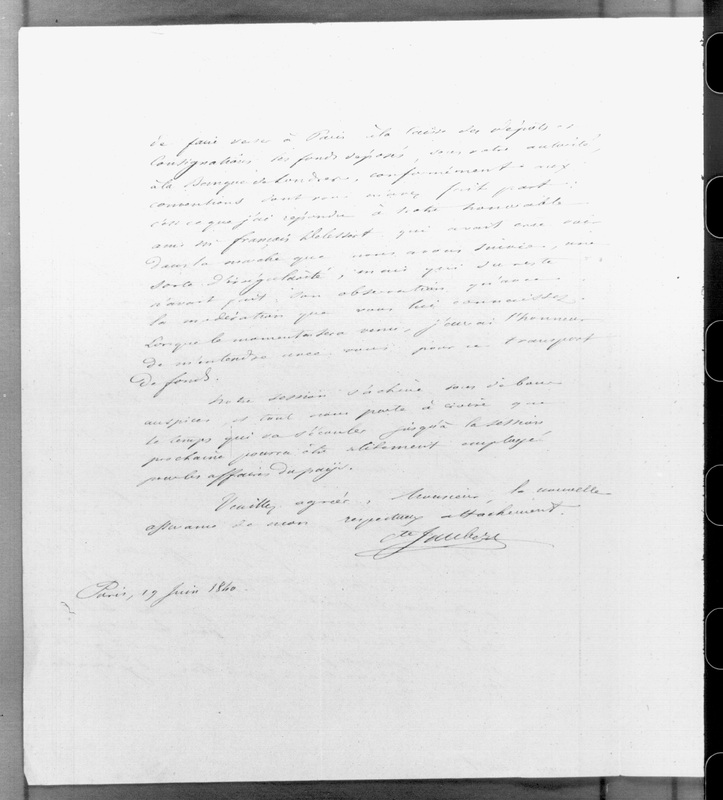 de faire verser à Paris à la caisse des dépôts et
consignations, les fonds déposés, sous votre autorité,
à la Banque de Londres, conformément aux
conventions dont vous m'avez fait part :
c'est ce que j'ai répondu à notre honorable
ami Mr françois Delessert qui avait cru voir
dans la marche que nous avons suivie, une
sorte d'irrégularité, mais qui du reste
n'avait fait son observation qu'avec
la modération que vous lui connaissez.
Lorsque le moment sera venu, j'aurai l'honneur
de m'entendre avec vous pour ce transport
de fonds.
Notre session s'achève sous de bons
auspices et tout nous porte à croire que
le temps qui va s'écouler jusqu'à la session
prochaine pourra être utilement employé
pour les affaires du pays.
Veuillez agréer, Monsieur, la nouvelle
assurance de mon respectueux attachement.
Cte Jaubert
Paris, 19 Juin 1840.